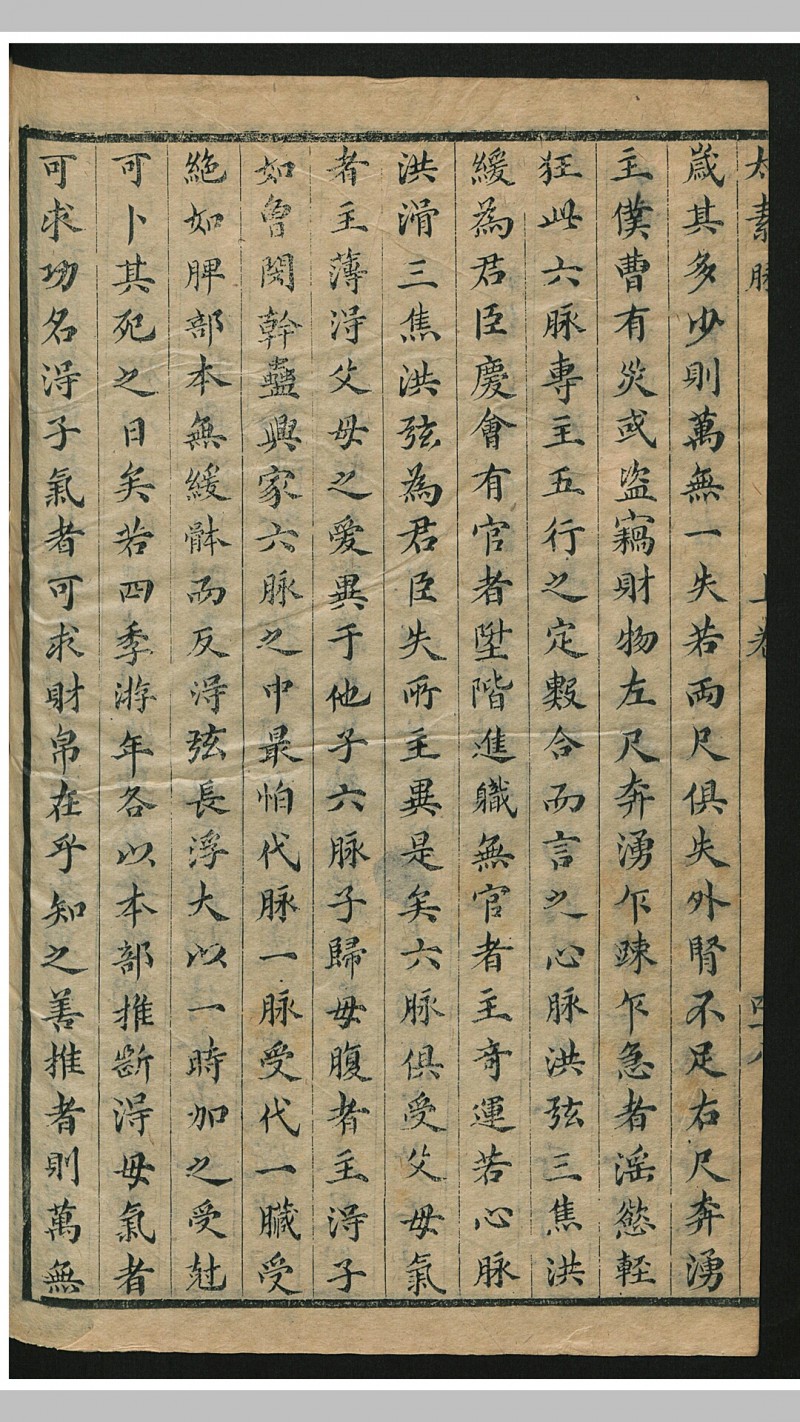 太素脉 上卷
嵗其多少則萬無一失若兩尺俱失外腎不足右尺奔湧
主僕曹有災或盜竊財物左尺奔湧乍踈乍急者滛慾輕
狂此六脉專主五行之定數合而言之心脉洪弦三焦洪
緩為君臣慶會有官者陞階進職無官者主奇運若心脉
洪滑三焦洪弦為君臣失所主異是矣六脉俱受父母氣
者主薄淂父母之愛異于他子六脉子歸母腹者主淂子
如魯閔幹蠱興家六脉之中最怕代脉一脉受代一臟受
絕如脾部本無緩體而反淂弦長浮大以一時加之受尅
可卜其死之日矣若四季游年各以本部推斷淂母氣者
可求功名淂子氣者可求財帛在乎知之善推者則萬無